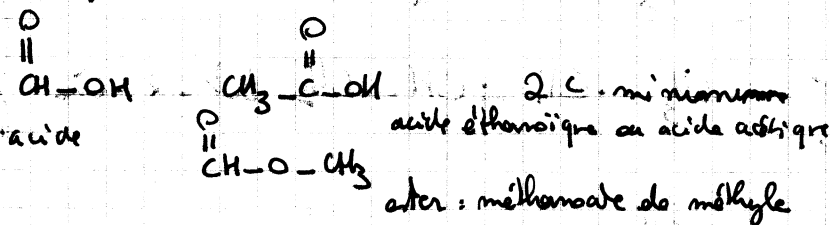 O O
|| ||
CH-OH CH3-C-OH 2 C minimum
acide éthanoïque ou acide acétique
acide O
||
CH-O-CH3
ester : méthanoate de méthyle